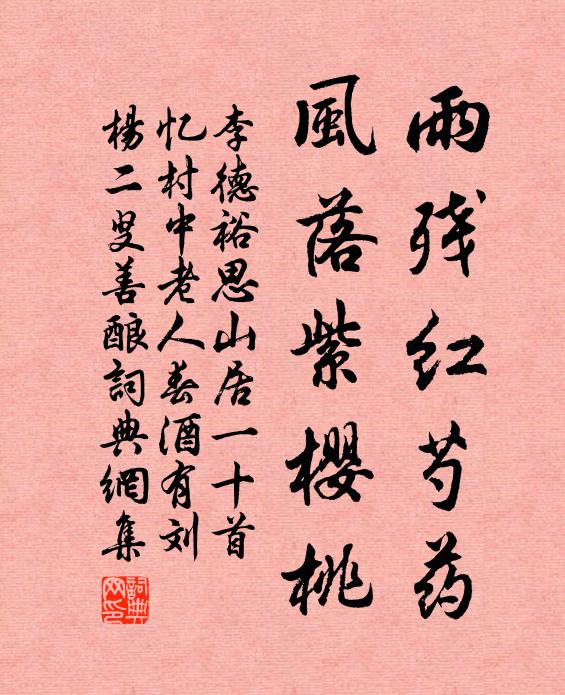 雨残红芍药
風落紫櫻桃
李德裕思山居一十首
忆村中老人春酒有刘
楊二叟善酿詞典網集
詞典網印